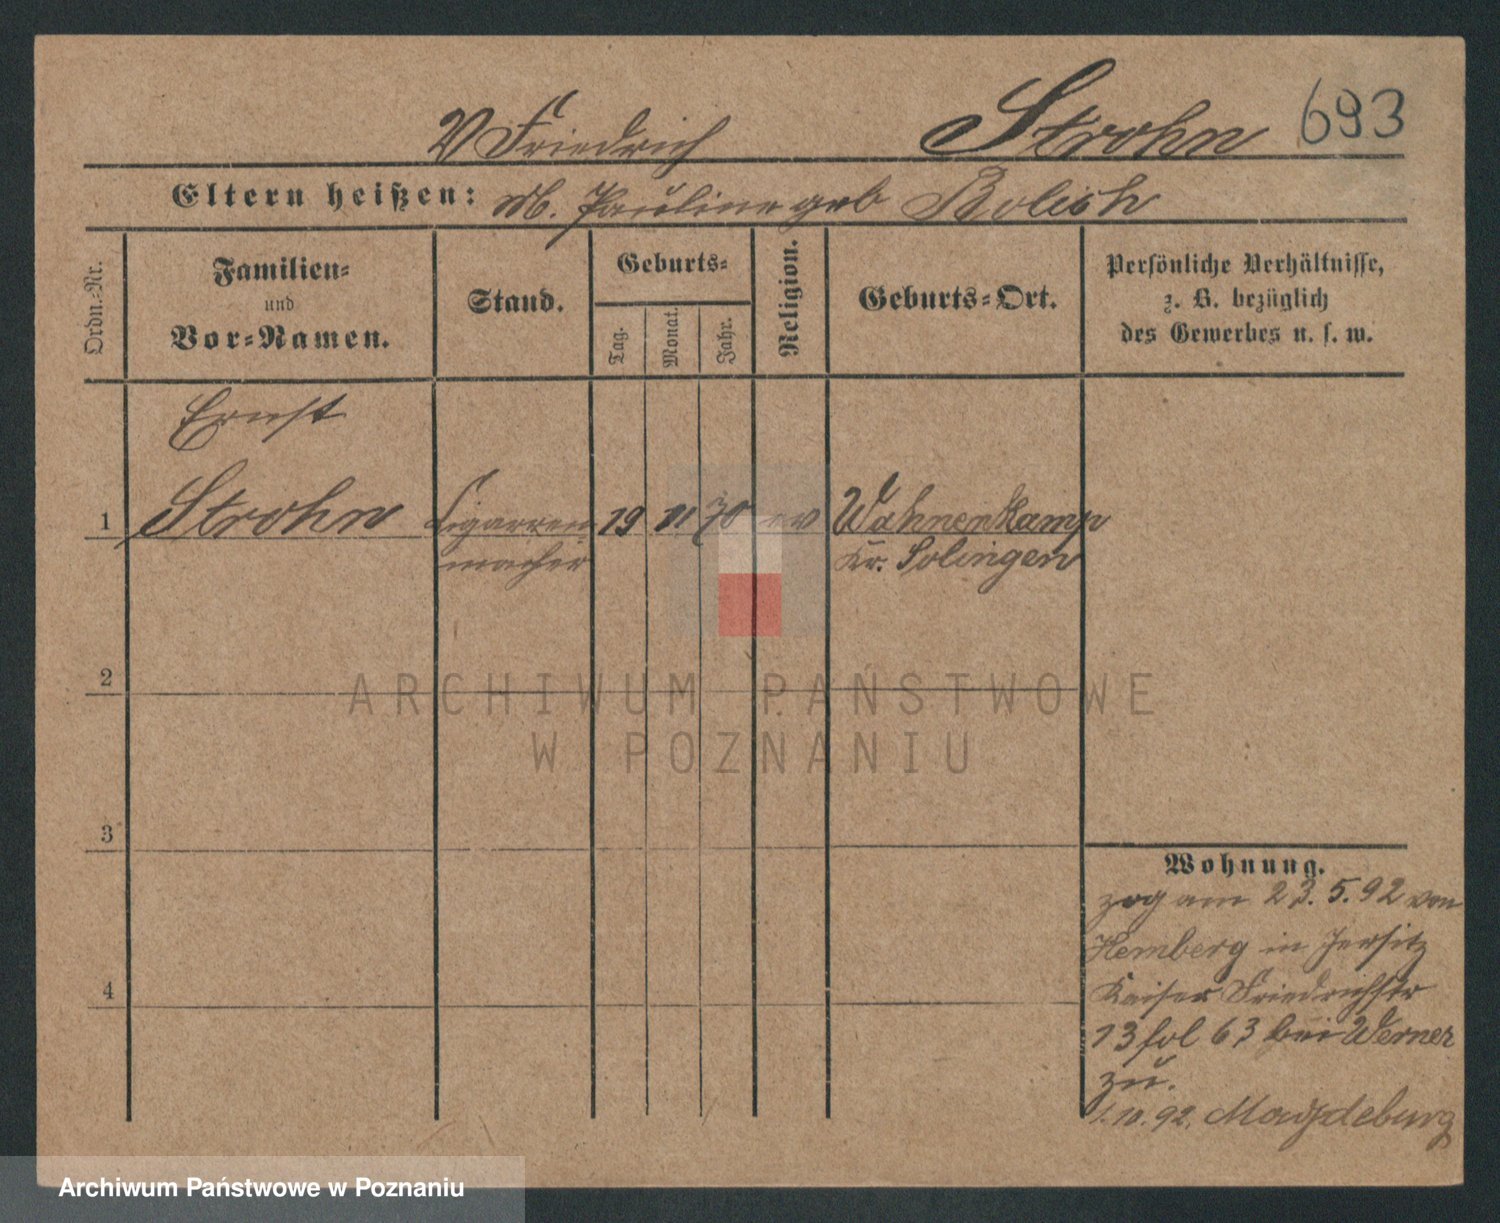 V Friedrich Strohn 693
Eltern heißen: M. Pauline geb Bolish
Ordn.-Nr.
Familien-
und
Vor-Namen.
Stand.
Geburts-
Tag.
Monat.
Jahr.
Religion.
Geburts-Ort.
Persönliche Verhältnisse,
z. B. bezüglich
des Gewerbes u. s. w.
Ernst
1 Strohn Cigarren 19 11 70 ev Wahnenkamp
macher Kr. Solingen
2
ARCHIWUM PAŃSTWOWE
W POZNANIU
3
Wohnung.
zog am 23. 5. 92 von
Hemberg in Jersitz
Kaiser Friedrichstr
13 fol 63 bei Werner
zu.
4
1. 10. 92. Magdeburg
Archiwum Państwowe w Poznaniu